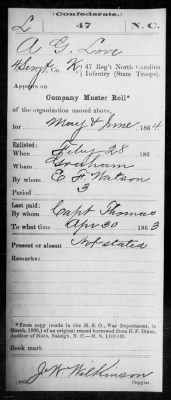 Confederate.
L 47 N.C.
A G. Love
4 Sergt, Co. K, 47 Reg't North Carolina
Infantry (State Troops).
Appears on
Company Muster Roll*
of the organization named above,
for May & June, 1864
Enlisted:
When Feby 28 186
Where Graham
By whom E. F. Watson
Period 3
Last paid:
By whom Capt Thomas
To what time Apr 30 1863
Present or absent Not stated
Remarks:
*From copy (made in the M. S. O., War Department, in
March, 1906,) of an original record borrowed from B. F. Dixon,
Auditor of State, Raleigh, N. C.
Book mark:
J W Wilkinson
Copyist.